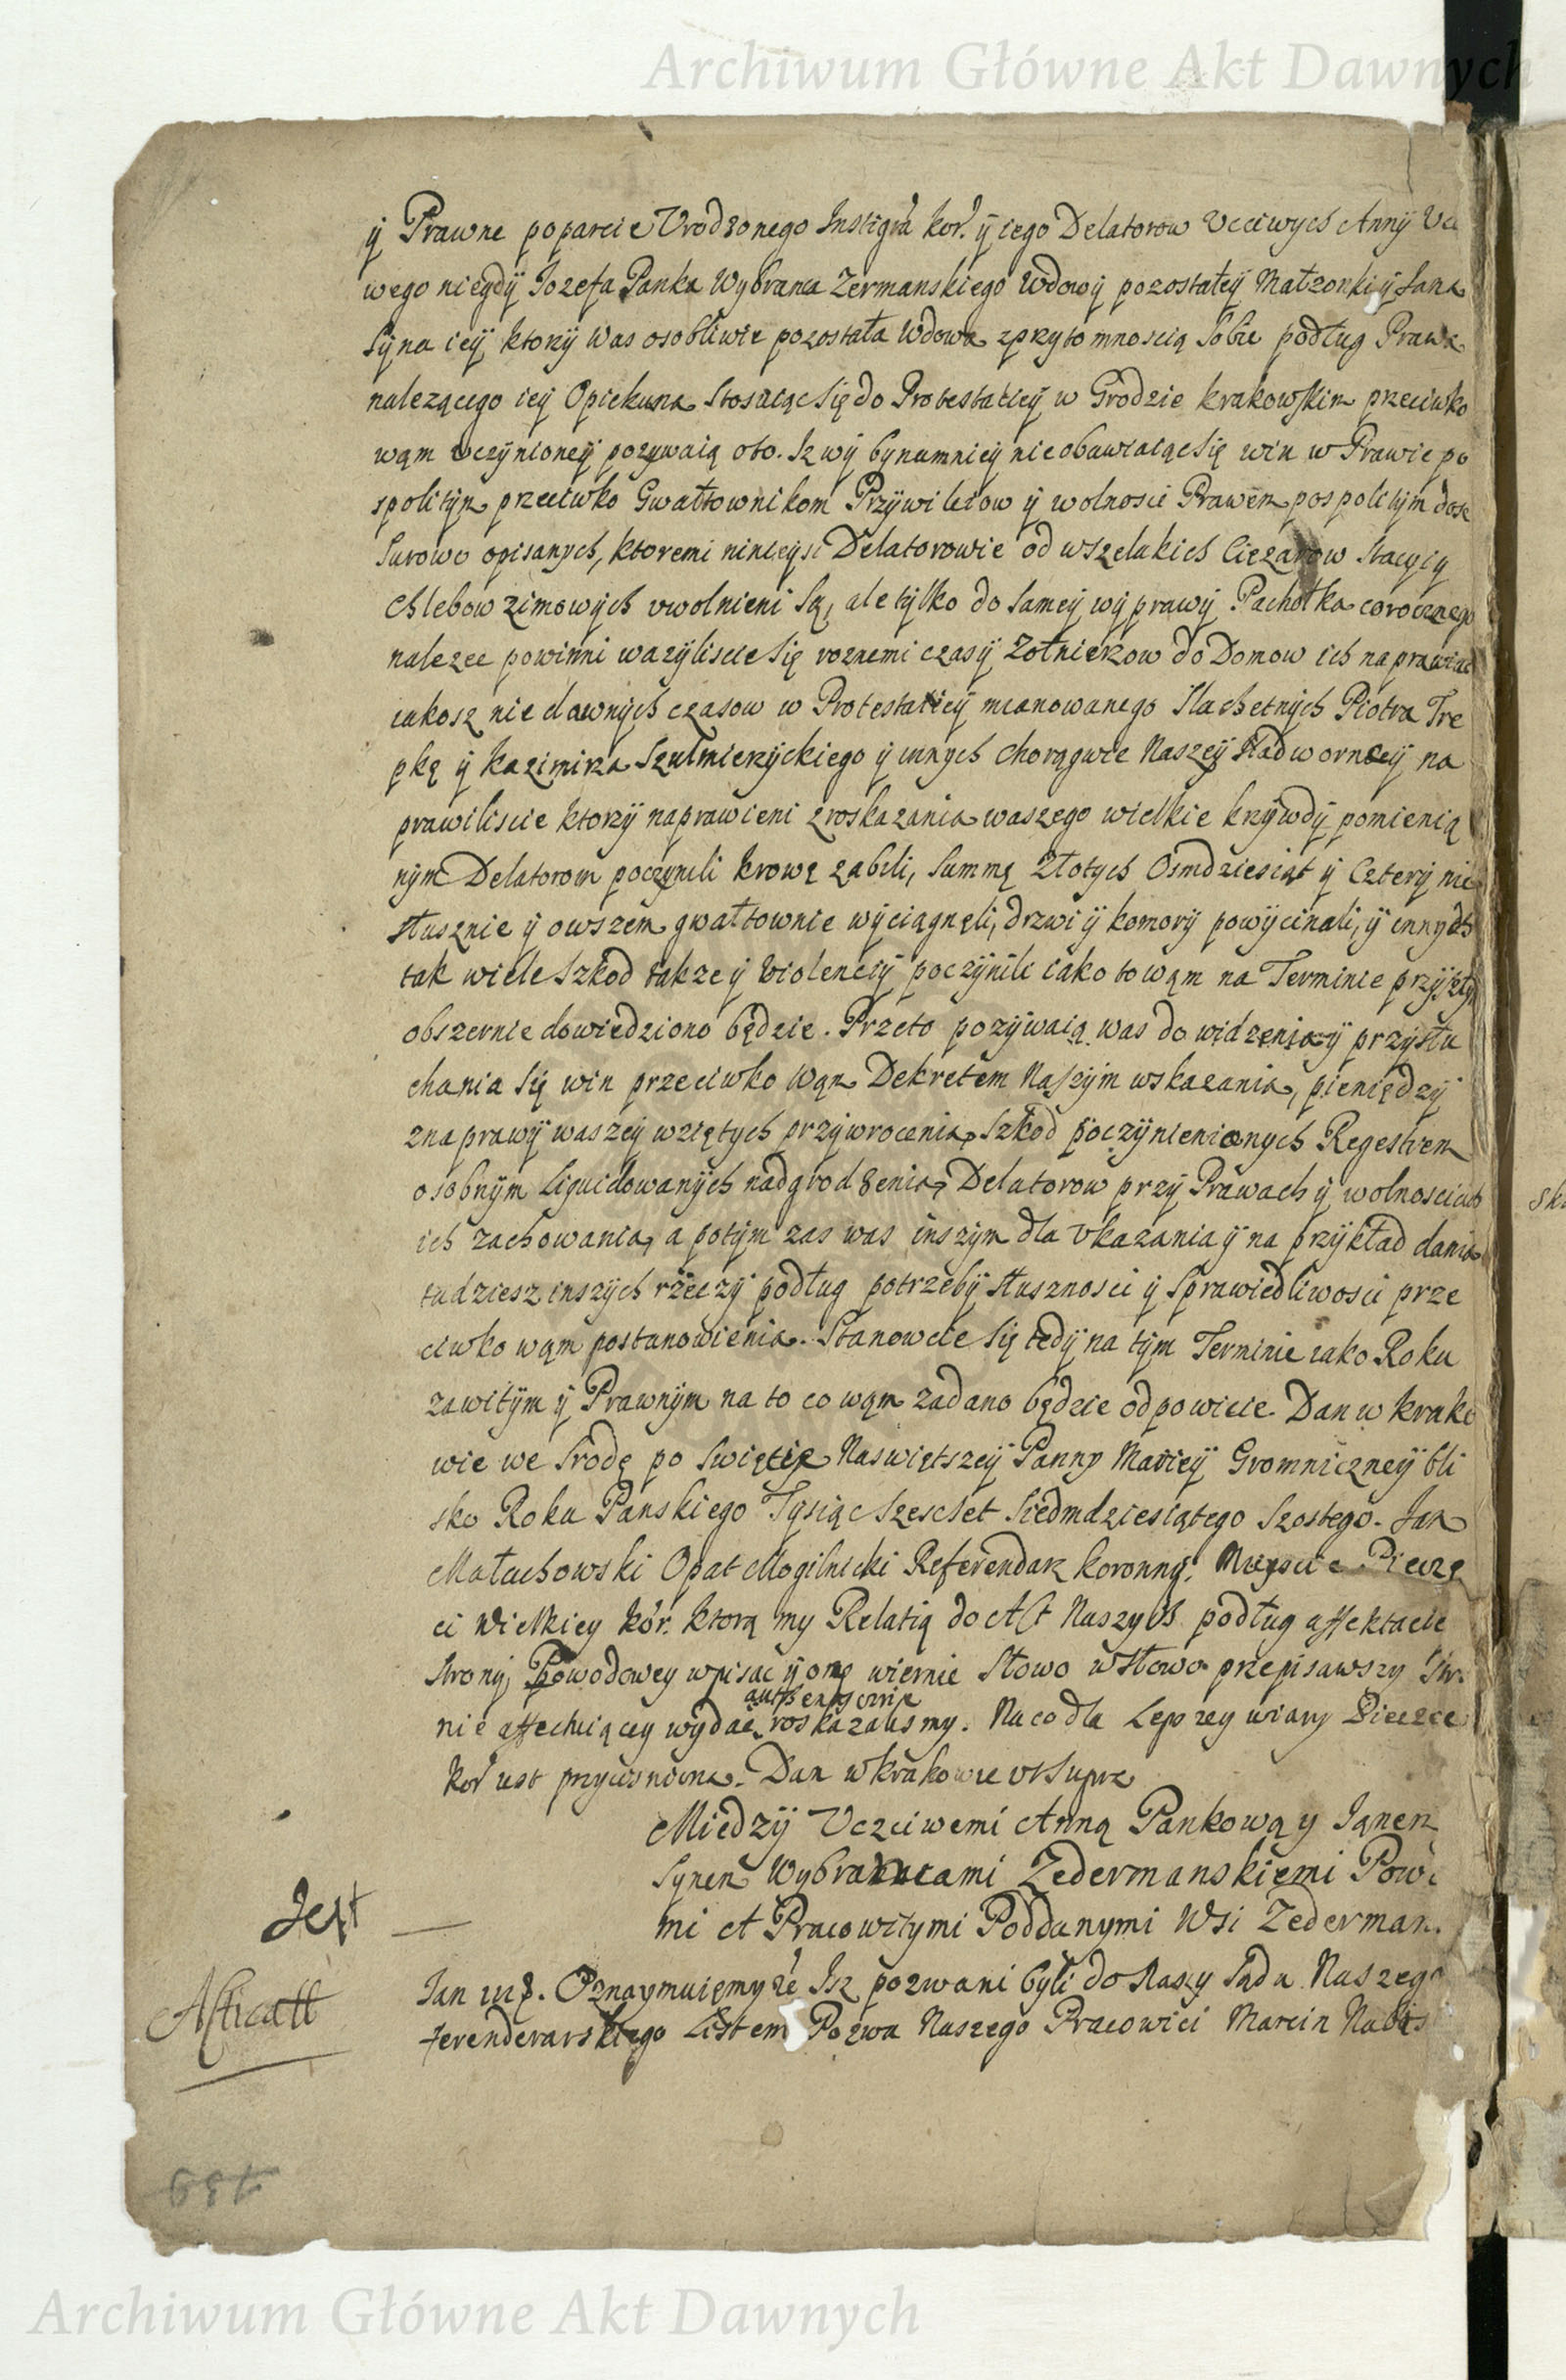 Archiwum Główne Akt Dawnych
ÿ Prawne poparcie Vrodzonego Instigra kor. ÿ iego Delatorow Vcciwych Annÿ Vcci
wego niegdÿ Iozefa Panka Wybranca Zermanskiego Wdowÿ pozostałeÿ Małzonki ÿ Jana
Sÿna ieÿ ktorÿ was osobliwie pozostała Wdowa zprzytomnoscią Sobie podług Prawa
nalezącego ieÿ Opiekuna Stosuiąc się do Protestatieÿ w Grodzie krakowskim przeciwko
wąm vczÿnioneÿ pozywaią oto. Iz wÿ bynamnieÿ nieobawiaiąc się win w Prawie po
spolitÿm przeciwko Gwałtownikom Przÿwileiow ÿ wolnosci Prawem pospolitÿm dosc
Surowo opisanych, ktoremi ninieÿsi Delatorowie od wszelakich Ciezarow Stacyiÿ
Chlebow zimowÿch vwolnieni Są, ale tÿlko do Sameÿ wÿprawÿ Pachołka corocznego
nalezec powinni wazÿliscie Się roznemi czasÿ Zołnierzow do Domow ich naprawiac
iakosz niedawnÿch czasow w Protestatieÿ mianowanego Slachetnÿch Piotra Tre
pkę ÿ Kazimirza Szulmierzÿckiego ÿ innÿch chorągwie Naszeÿ Nadworneÿ na
prawiliscie ktorzÿ naprawieni zroskazania waszego wielkie krzÿwdÿ pomienią
nÿm Delatorom poczÿnili krowę zabili, Summę Złotÿch Osmdziesiąt ÿ Czterÿ nie
słusznie ÿ owszem gwałtownie wÿciągnęli, drzwi ÿ komorÿ powÿcinali, ÿ innÿch
tak wiele Szkod takze ÿ Violenciÿ poczÿnili iako to wąm na Terminie przÿszłÿm
obszernie dowiedziono będzie. Przeto pozÿwaią was do widzenia ÿ przÿsłu
chania Się win przeciwko Wąm Dekretem Naszÿm wskazania, pieniędzÿ
znaprawÿ waszeÿ wziętÿch przÿwrocenia, Szkod poczÿnienionych Regestrem
osobnÿm Liquidowanÿch nadgrodzenia, Delatorow przÿ Prawach ÿ wolnosciach
ich zachowania, a potÿm zas was inszÿm dla vkazania ÿ na przÿkład dania
tudziesz inszÿch rzeczÿ podług potrzebÿ słusznosci ÿ Sprawiedliwosci prze
ciwko wąm postanowienia. Stanowcie Się tedÿ na tÿm Terminie iako Roku
zawitÿm ÿ Prawnÿm na to co wąm zadano będzie odpowiecie. Dan w krako
wie we Srodę po Swięcie Naswiętszeÿ Pannÿ Marieÿ Gromniczneÿ bli
sko Roku Panskiego Tysiąc Szescset Siedmdziesiątego Szostego. Jan
Małachowski Opat Mogilnicki Referendarz koronnÿ. Mieysce Pieczę
ci Wielkiey kor. ktorą my Relatią do Akt Naszych podług affektacie
Stronÿ Powodowey wpisac ÿ onę wiernie Słowo wSłowo przepisawszy Stro
nie affectuiącey wydac autshentycznie roskazalismy. Na co dla Lepszey wiary Pieczec
kor iest przycisniona. Dan wkrakowie vt Supra
Miedzÿ Vczciwemi Anną Pankową y Iąnem
Synem Wybrancami Zedermanskiemi Powo
mi A Pracowitymi Poddanymi Wsi Zederman.
Jest
Afficatt
Jan III. Oznaymuięmy ze Isz pozwani byli do Nasz Sądu Naszego
ferenderarskiego Listem Pozwa Naszego Pracowici Marcin Nabis
439
Archiwum Główne Akt Dawnych